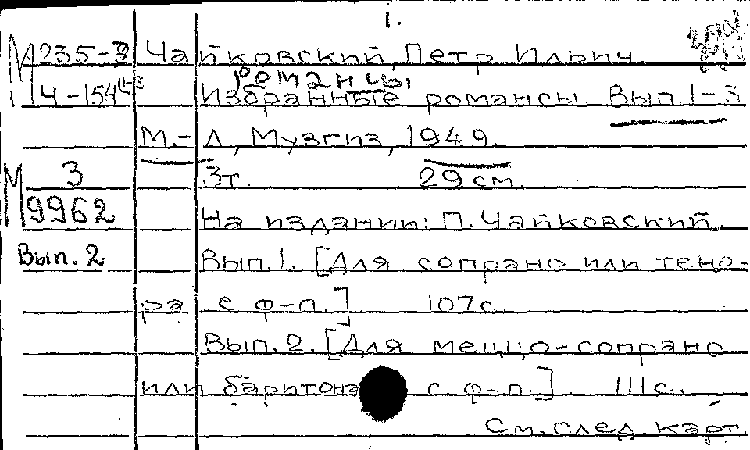 1.
М 235-3 Чайковский, Петр Ильич.
романсы
14-154 Избранные романсы. Вып. 1-3
М.-Л, Музгиз, 1949.
М 3 3т. 29 см.
9962 На издании: П. Чайковский.
Вып. 2 Вып. 1. [Для сопрано или тено-
ра с ф-п.] 107 с.
Вып. 2. [Для меццо-сопрано
или баритона с ф-п.] 111 с.
См. след. карт.